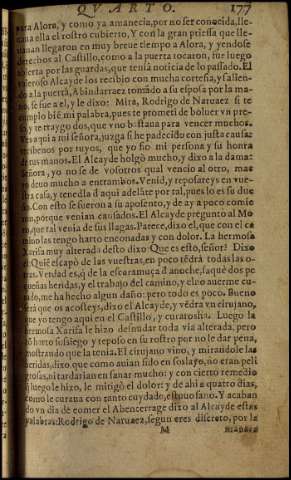 QVARTO. 177
para Alora, y como ya amanecia, por no ser conocida, lle
uaua ella el rostro cubierto, Y con la gran priessa que lle
uauan llegaron en muy breue tiempo a Alora, y yendose
derechos al Castillo, como a la puerta tocaron, fue luego
abierta por las guardas, que tenia noticia de lo passado. El
valeroso Alcayde los recibio con mucha cortesia, y salien
do a la puerta, Abindarraez tomãdo a su esposa por la ma
no, se fue a el, y le dixo: Mira, Rodrigo de Naruaez si te
cumplo biẽ mi palabra, pues te prometi de boluer vn pre
so, y te traygo dos, que vno bastaua para vencer muchos.
Ves aqui a mi señora, juzga si he padecido con justa causa:
recibenos por tuyos, que yo fio mi persona y su honra
de tus manos. El Alcayde holgò mucho, y dixo a la dama:
Señora, yo no se de vosotros qual vencio al otro, mas
yo deuo mucho a entrambos. Venid, y reposareys en vues
tra casa, y tenedla d aqui adelãte por tal, pues lo es su due
ño. Con esto se fueron a su aposento, y de ay a poco comie
ron, porque venian cansados. El Alcayde preguntò al Mo
ro, que tal venia de sus llagas. Parece, dixo el, que con el ca
mino las tengo harto enconadas y con dolor. La hermosa
Xarifa muy alterada desto dixo: Que es esto, señor? Dixo
el: Quiẽ escapò de las vuestras, en poco tẽdrà todas las o-
tras. Verdad es, q de la escaramuça d anoche, saquè dos pe
queñas heridas, y el trabajo del camino, y el no auerme cu-
rado, me ha hecho algun daño: pero todo es poco. Bueno
serà que os acosteys, dixo el Alcayde, y vẽdrà vn cirujano,
que yo tengo aqui en el Castillo, y curaroshà. Luego la
hermosa Xarifa le hizo desnudar toda via alterada, pero
cõ harto sossiego y reposo en su rostro por no le dar pena,
mostrando que la tenia. El cirujano vino, y mirandole las
heridas, dixo que como auian sido en soslayo, no eran peli
grosas, ni tardarian en sanar mucho: y con cierto remedio
q luego hizo, le mitigò el dolor: y de ahi a quatro dias,
como le curaua con tanto cuydado, estuuo sano. Y acaban
do vn dia de comer el Abencerrage dixo al Alcayde estas
palabras: Rodrigo de Naruaez, segun eres discreto, por la
M